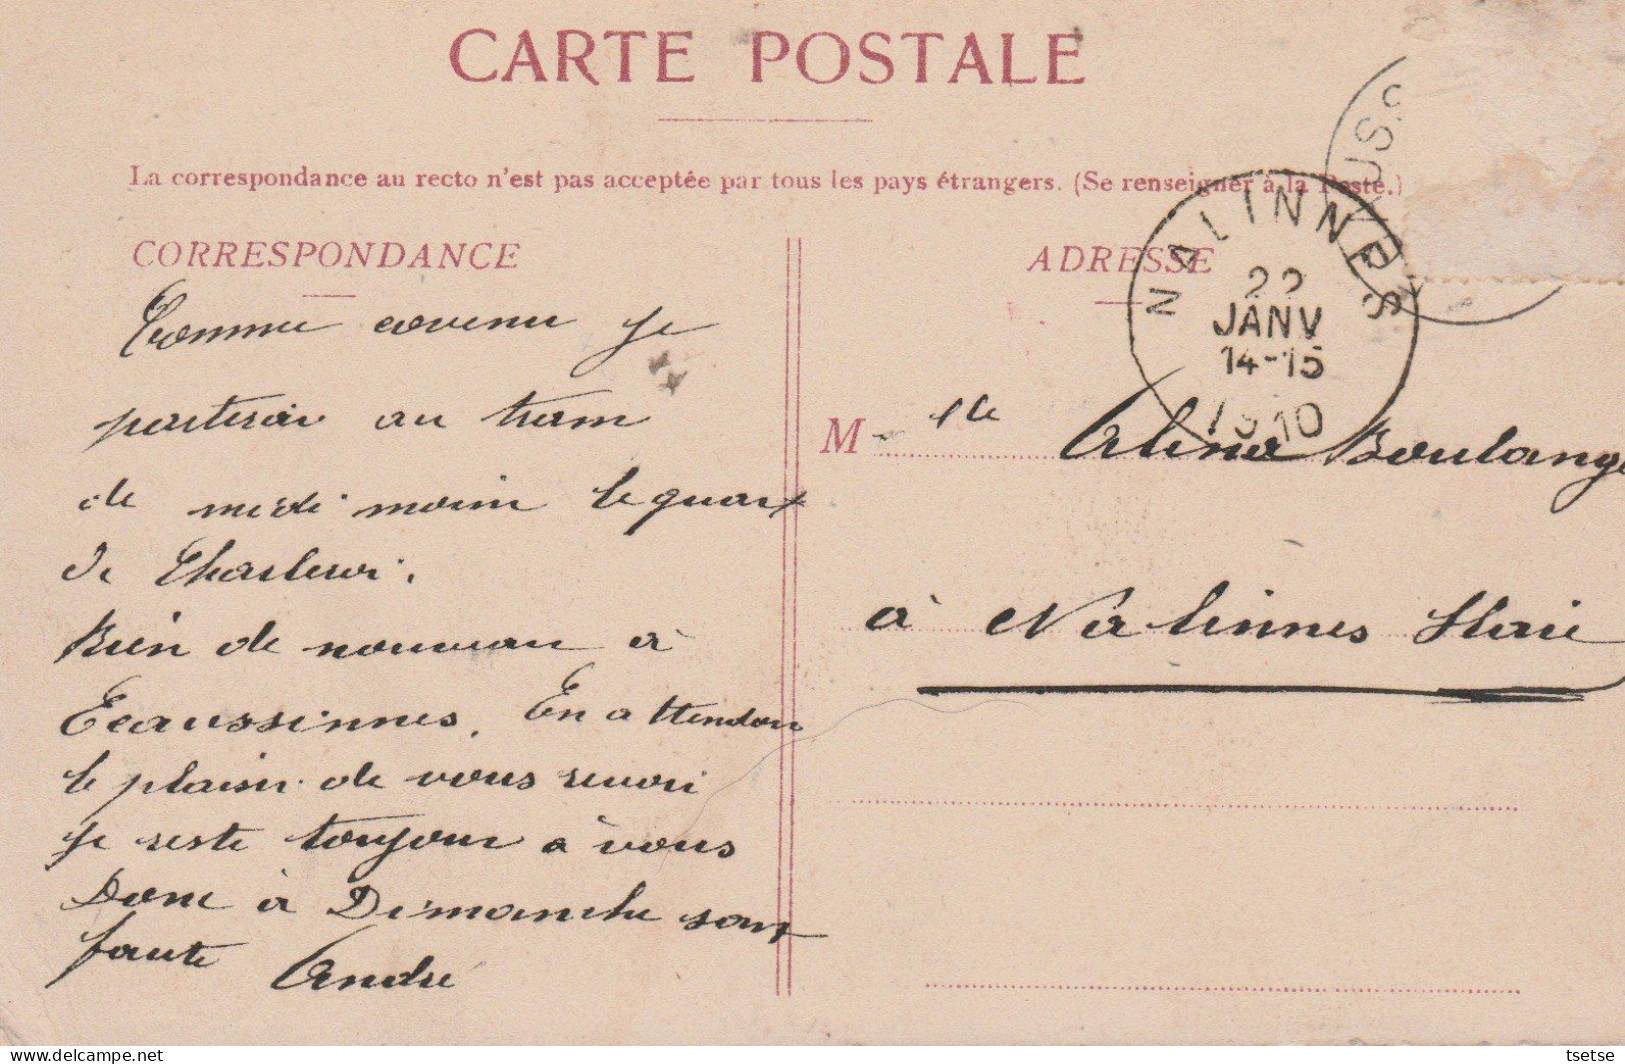 CARTE POSTALE
La correspondance au recto n'est pas acceptée par tous les pays étrangers. (Se renseigner à la Poste.)
CORRESPONDANCE
Comme convenu je
partirai au tram
de midi moin le quart
de Charleroi.
Rien de nouveau à
Ecaussinnes. En attendan
le plaisir de vous revoir
je reste toujour à vous
Donc à Dimanche sans
faute André
ADRESSE
NALINNES
22
JANV
14-15
1910
M lle Alina Boulange
à Nalinnes Haie
www.delcampe.net
tsetse